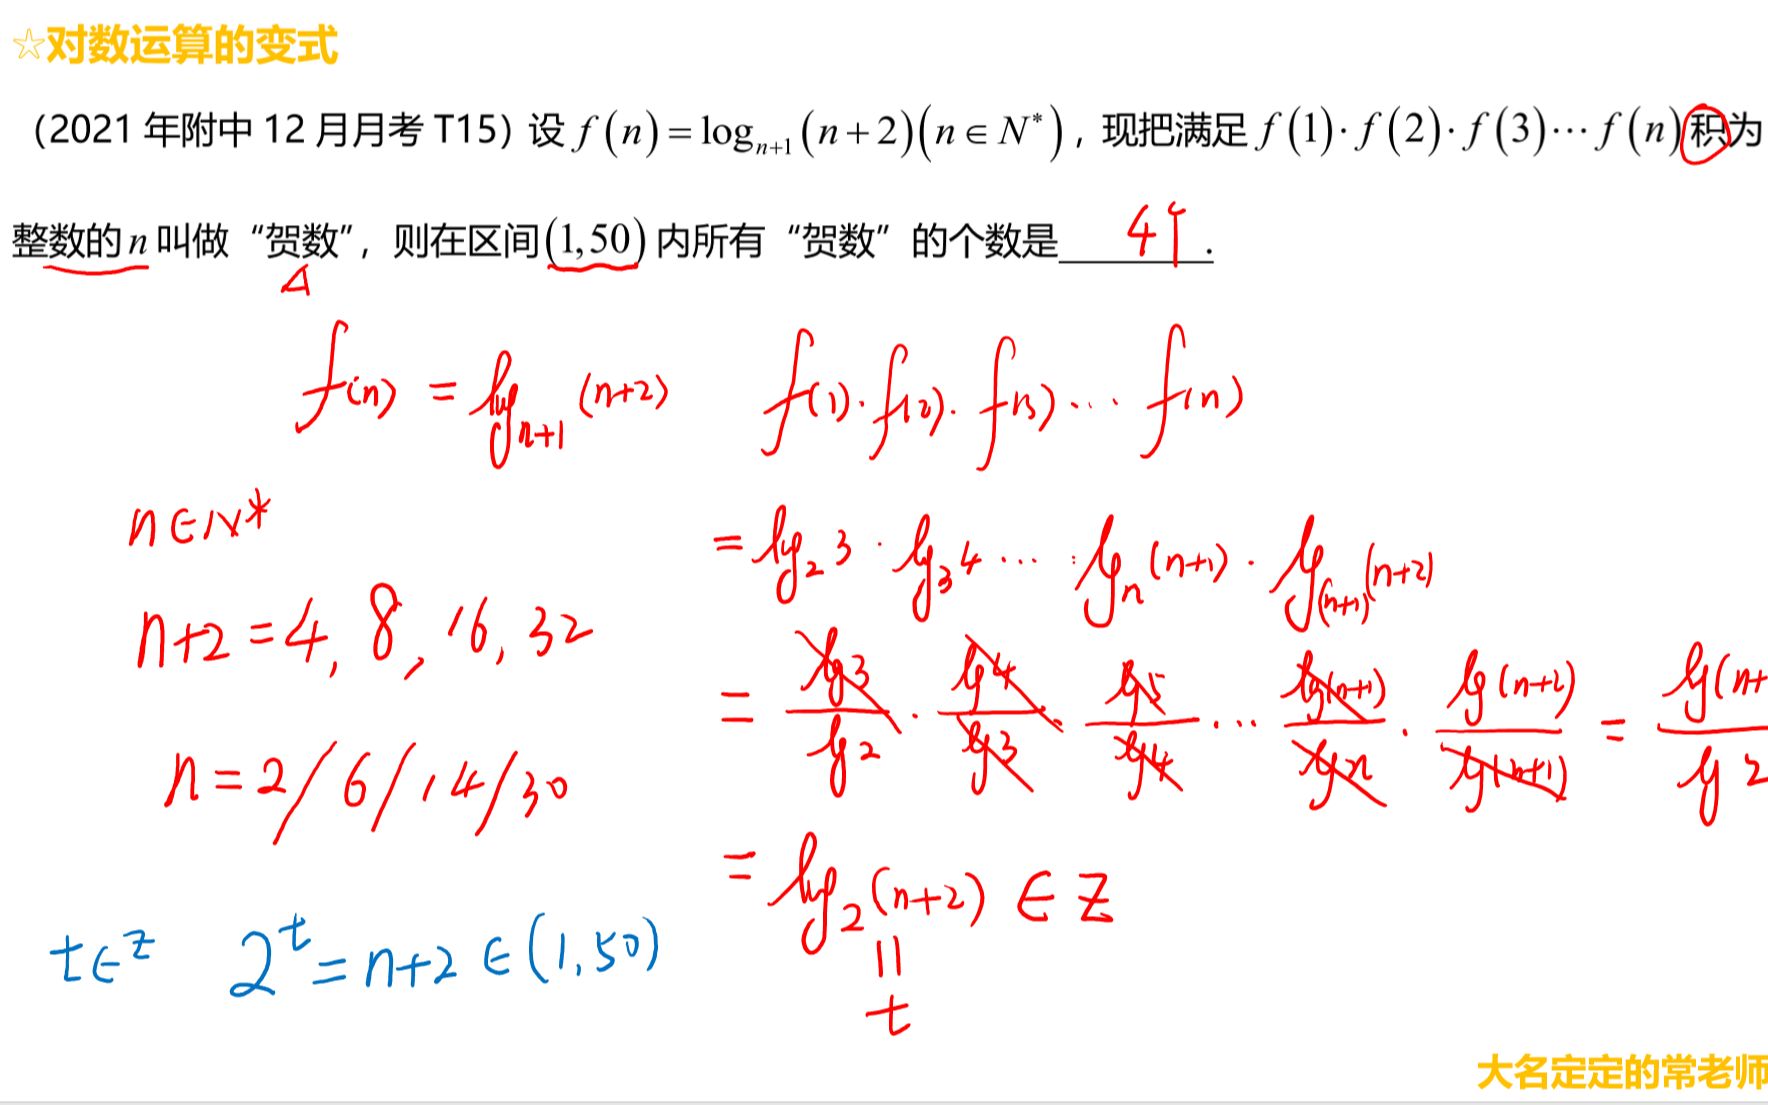 ☆对数运算的变式
（2021 年附中 12 月月考 T15）设 f(n)=log_{n+1}(n+2)(n∈N*)，现把满足 f(1)·f(2)·f(3)···f(n)积为
整数的 n 叫做“贺数”，则在区间(1,50)内所有“贺数”的个数是 4个 .
f(n) = log_{n+1}(n+2)
f(1)·f(2)·f(3)···f(n)
n∈N*
= log_2 3 · log_3 4 ··· log_n(n+1) · log_{(n+1)}(n+2)
n+2=4, 8, 16, 32
= lg3/lg2 · lg4/lg3 · lg5/lg4 ··· lg(n+1)/lgn · lg(n+2)/lg(n+1) = lg(n+/lg2
n=2/6/14/30
= log_2(n+2) ∈ Z
t∈Z 2^t=n+2∈(1,50)
=
t
大名定定的常老师